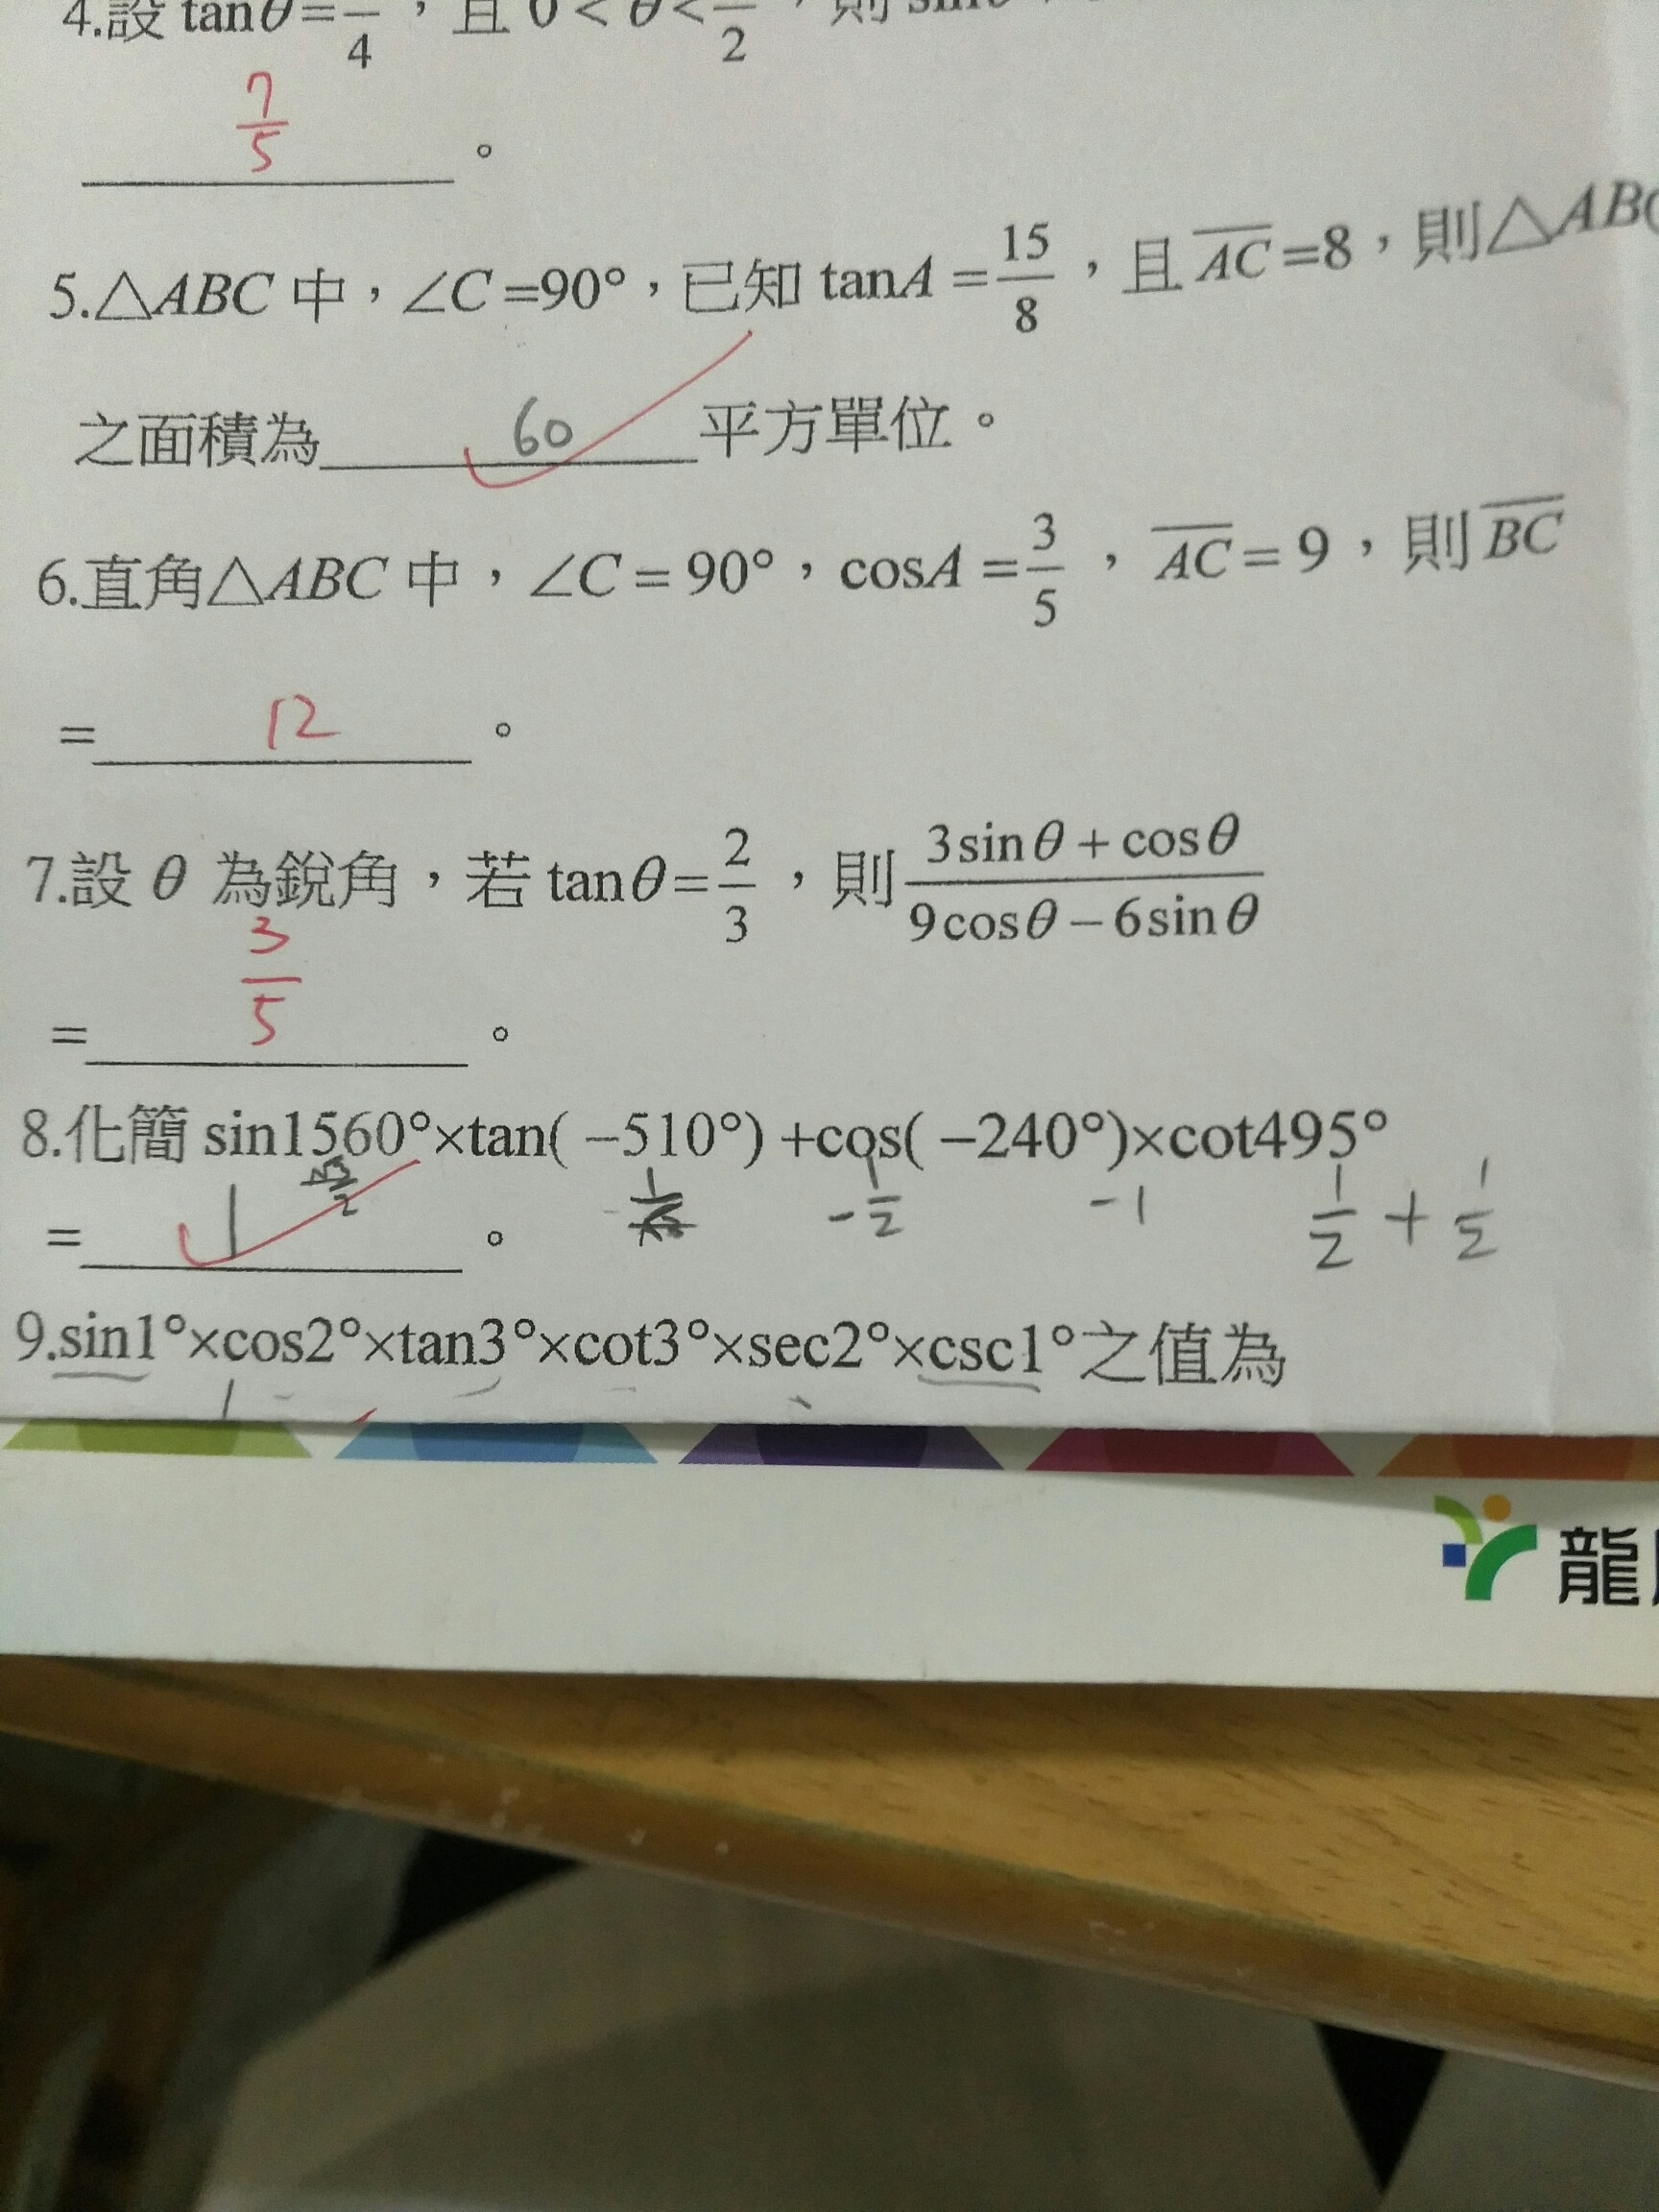 4.設 tanθ=—/4，且 0<θ<—/2，則 sinθ
7/5 。
5.△ABC 中，∠C=90°，已知 tanA=15/8，且 AC=8，則△ABC
之面積為 60 平方單位。
6.直角△ABC 中，∠C=90°，cosA=3/5，AC=9，則 BC
= 12 。
7.設 θ 為銳角，若 tanθ=2/3，則 3sinθ+cosθ/9cosθ−6sinθ
= 3/5 。
8.化簡 sin1560°×tan(−510°)+cos(−240°)×cot495°
= 1 。 √3/2 1/√3 -1/2 -1 1/2+1/2
9.sin1°×cos2°×tan3°×cot3°×sec2°×csc1°之值為
1
龍